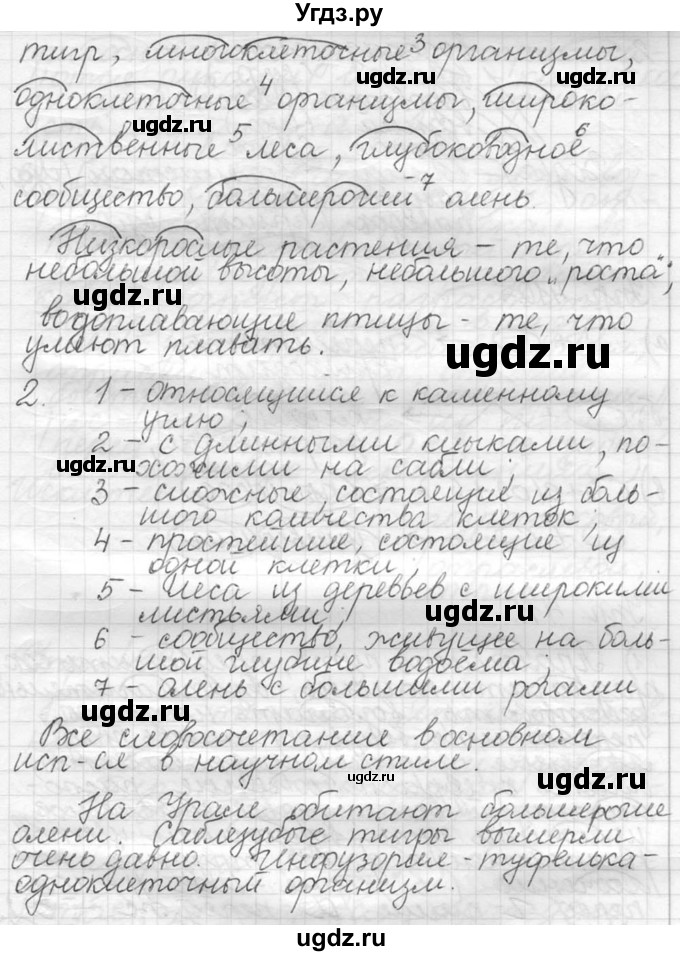 Угдз.ру
тигр, многоклеточные³ организмы,
одноклеточные⁴ организмы, широко-
лиственные⁵ леса, глубоководное⁶
сообщество, большерогий⁷ олень.
Низкорослые растения – те, что
небольшой высоты, небольшого „роста";
водоплавающие птицы – те, что
умеют плавать.
2. 1 – относящийся к каменному
углю;
2 – с длинными клыками, по-
хожими на сабли;
3 – сложные, состоящие из боль-
шого количества клеток;
4 – простейшие, состоящие из
одной клетки;
5 – леса из деревьев с широкими
листьями;
6 – сообщество, живущее на боль-
шой глубине водоёма;
7 – олень с большими рогами
Все словосочетание в основном
исп-ся в научном стиле.
На Урале обитают большерогие
олени. Саблезубые тигры вымерли
очень давно. Инфузория-туфелька-
одноклеточный организм.
ugdz.ru
ugdz.ru
ugdz.ru
ugdz.ru
ugdz.ru
ugdz.ru
ugdz.ru
ugdz.ru
ugdz.ru
ugdz.ru
ugdz.ru
ugdz.ru
ugdz.ru